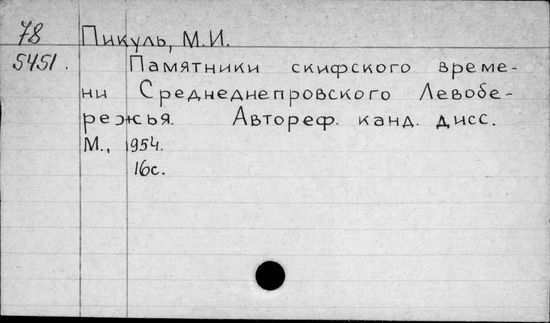 78 Пикуль, М.И.
5451. Памятники скифского време-
ни Среднеднепровского Левобе-
режья. Автореф. канд. дисс.
М., 1954.
16с.